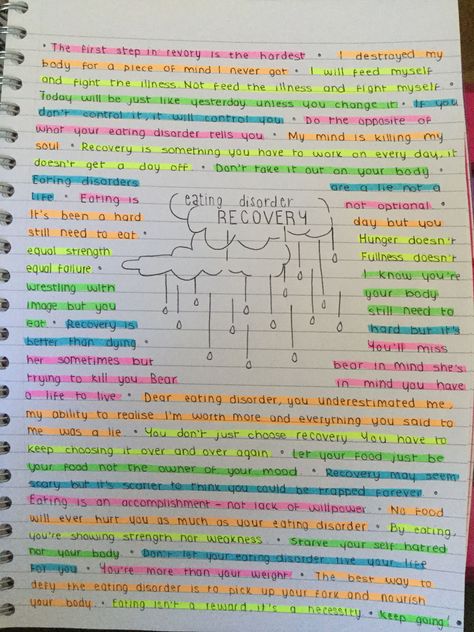 • The first step in revory is the hardest • I destroyed my
body for a piece of mind I never got • I will feed myself
and fight the illness Not feed the illness and fight myself •
Today will be just like yesterday unless you change it • If you
don't control it, it will control you • Do the opposite of
what your eating disorder tells you • My mind is killing my
soul • Recovery is something you have to work on every day, it
doesn't get a day off • Don't take it out on your body •
Eating disorders are a lie not a
life • Eating is eating disorder not optional •
It's been a hard RECOVERY day but you
still need to eat • Hunger doesn't
equal strength Fullness doesn't
equal failure • I know you're
wrestling with your body
image but you still need to
eat • Recovery is hard but it's
better than dying • You'll miss
her sometimes but bear in mind she's
trying to kill you Bear in mind you have
a life to live • Dear eating disorder, you underestimated me,
my ability to realise I'm worth more and everything you said to
me was a lie • You don't just choose recovery You have to
keep choosing it over and over again • Let your food just be
your food not the owner of your mood • Recovery may seem
scary but it's scarier to think you could be trapped forever •
Eating is an accomplishment - not lack of willpower • No food
will ever hurt you as much as your eating disorder • By eating,
you're showing strength not weakness • Starve your self hatred
not your body • Don't let your eating disorder live your life
for you • You're more than your weight • The best way to
defy the eating disorder is to pick up your fork and nourish
your body • Eating isn't a reward, it's a necessity • Keep going!